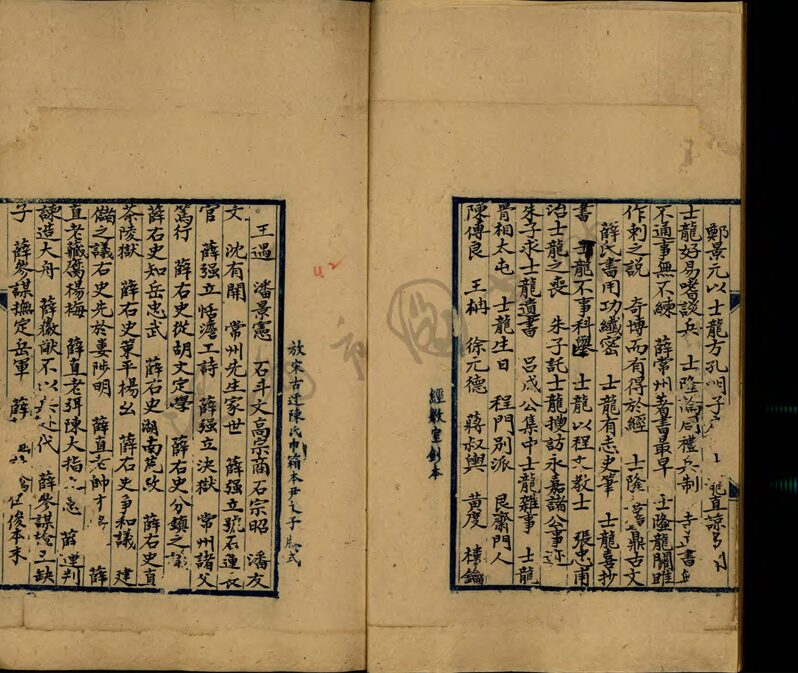 鄭景元以士龍方孔明子 士龍直諒
士龍好易嗜談兵 士隆論周禮兵制 寺書
不通事無不練 薛常州著書最早 士隆龍關雎
作刺之說 奇博而有得於經 士隆鼎古文
薛氏書用功纖密 士龍有志史筆 士龍喜抄
書 士龍不事科舉 士龍以程文教士 張忠甫
治士龍之喪 朱子託士龍搜訪永嘉諸公事迹
朱子求士龍遺書 呂成公集中士龍雜事 士龍
骨相太屯 士龍生日 程門別派 艮齋門人
陳傅良 王枏 徐元德 蔣叔輿 黃度 樓鑰
經敎室鈔本
放宋古迂陳氏巾箱本尹文子版式
王遇 潘景憲 石斗文高宗商石宗昭 潘友
文 沈有開 常州先生家世 薛强立號石蓮
官 薛强立恬澹工詩 薛强立決獄 常州諸父
篤行 薛右史從胡文定學 薛右史分鎮之議
薛右史知岳忠武 薛右史湖南施政 薛右史直
茶陵獄 薛右史策平楊幺 薛右史爭和議 建
儲之議右史先於婁陟明 薛直老帥 薛
直老藏腐楊梅 薛直老弭陳大指之 薛運判
諫造大舟 薛徽猷不以代 薛參謀 缺
子 薛參謀撫定岳軍 薛 伍俊本末